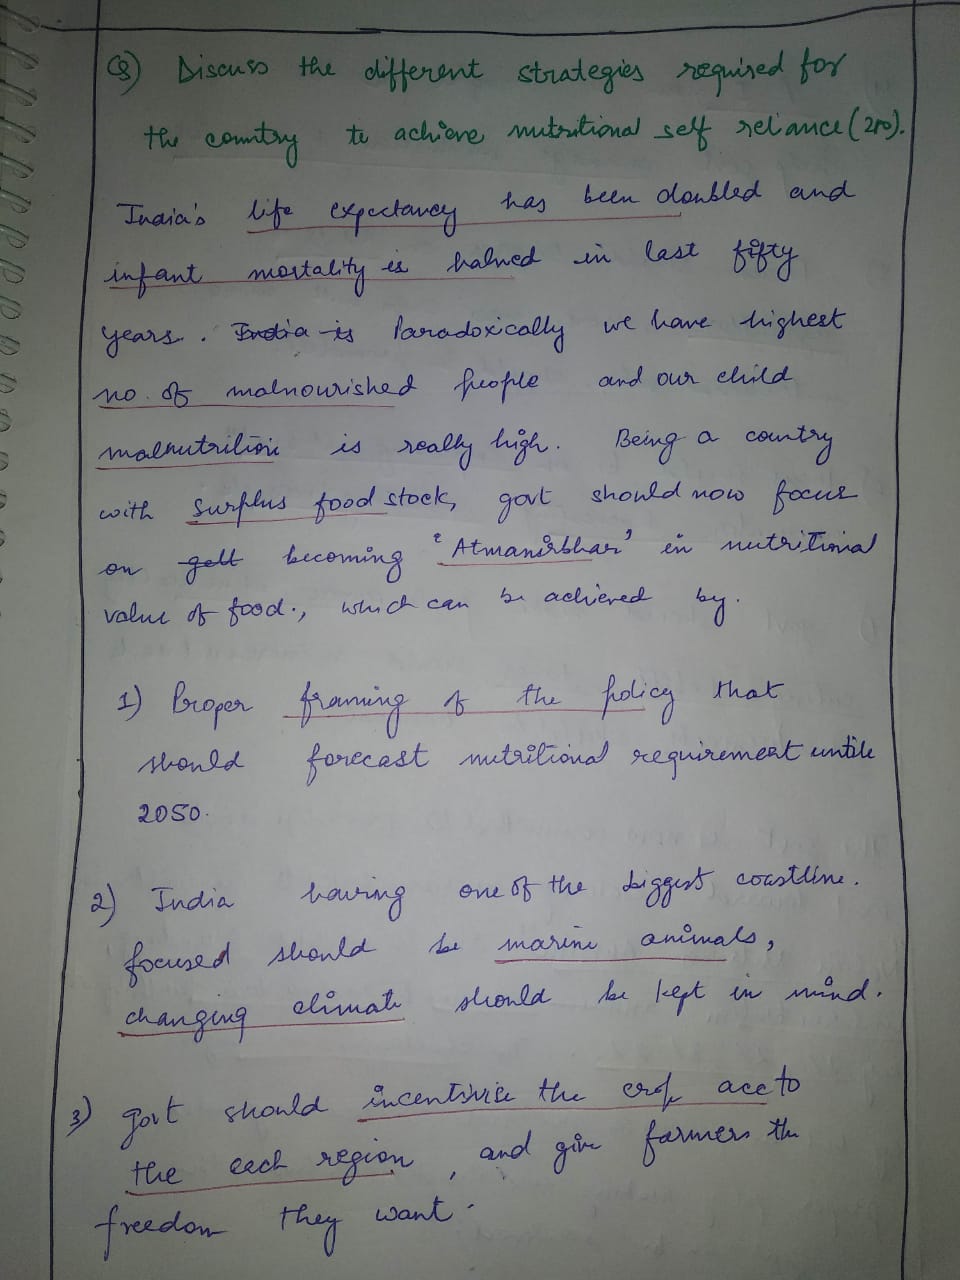 Q) Discuss the different strategies required for
the country to achieve nutritional self reliance (200).
India's life expectancy has been doubled and
infant mortality is halved in last fifty
years. India is Paradoxically we have highest
no. of malnourished people and our child
malnutrition is really high. Being a country
with surplus food stock, govt should now focus
on gett becoming 'Atmanirbhar' in nutritional
value of food., which can be achieved by.
1) Proper framing of the policy that
should forecast nutritional requirement untile
2050.
2) India having one of the biggest coastline.
focused should be marine animals,
changing climate should be kept in mind.
3) govt should incentivise the crop acc to
the each region, and give farmers the
freedom they want.